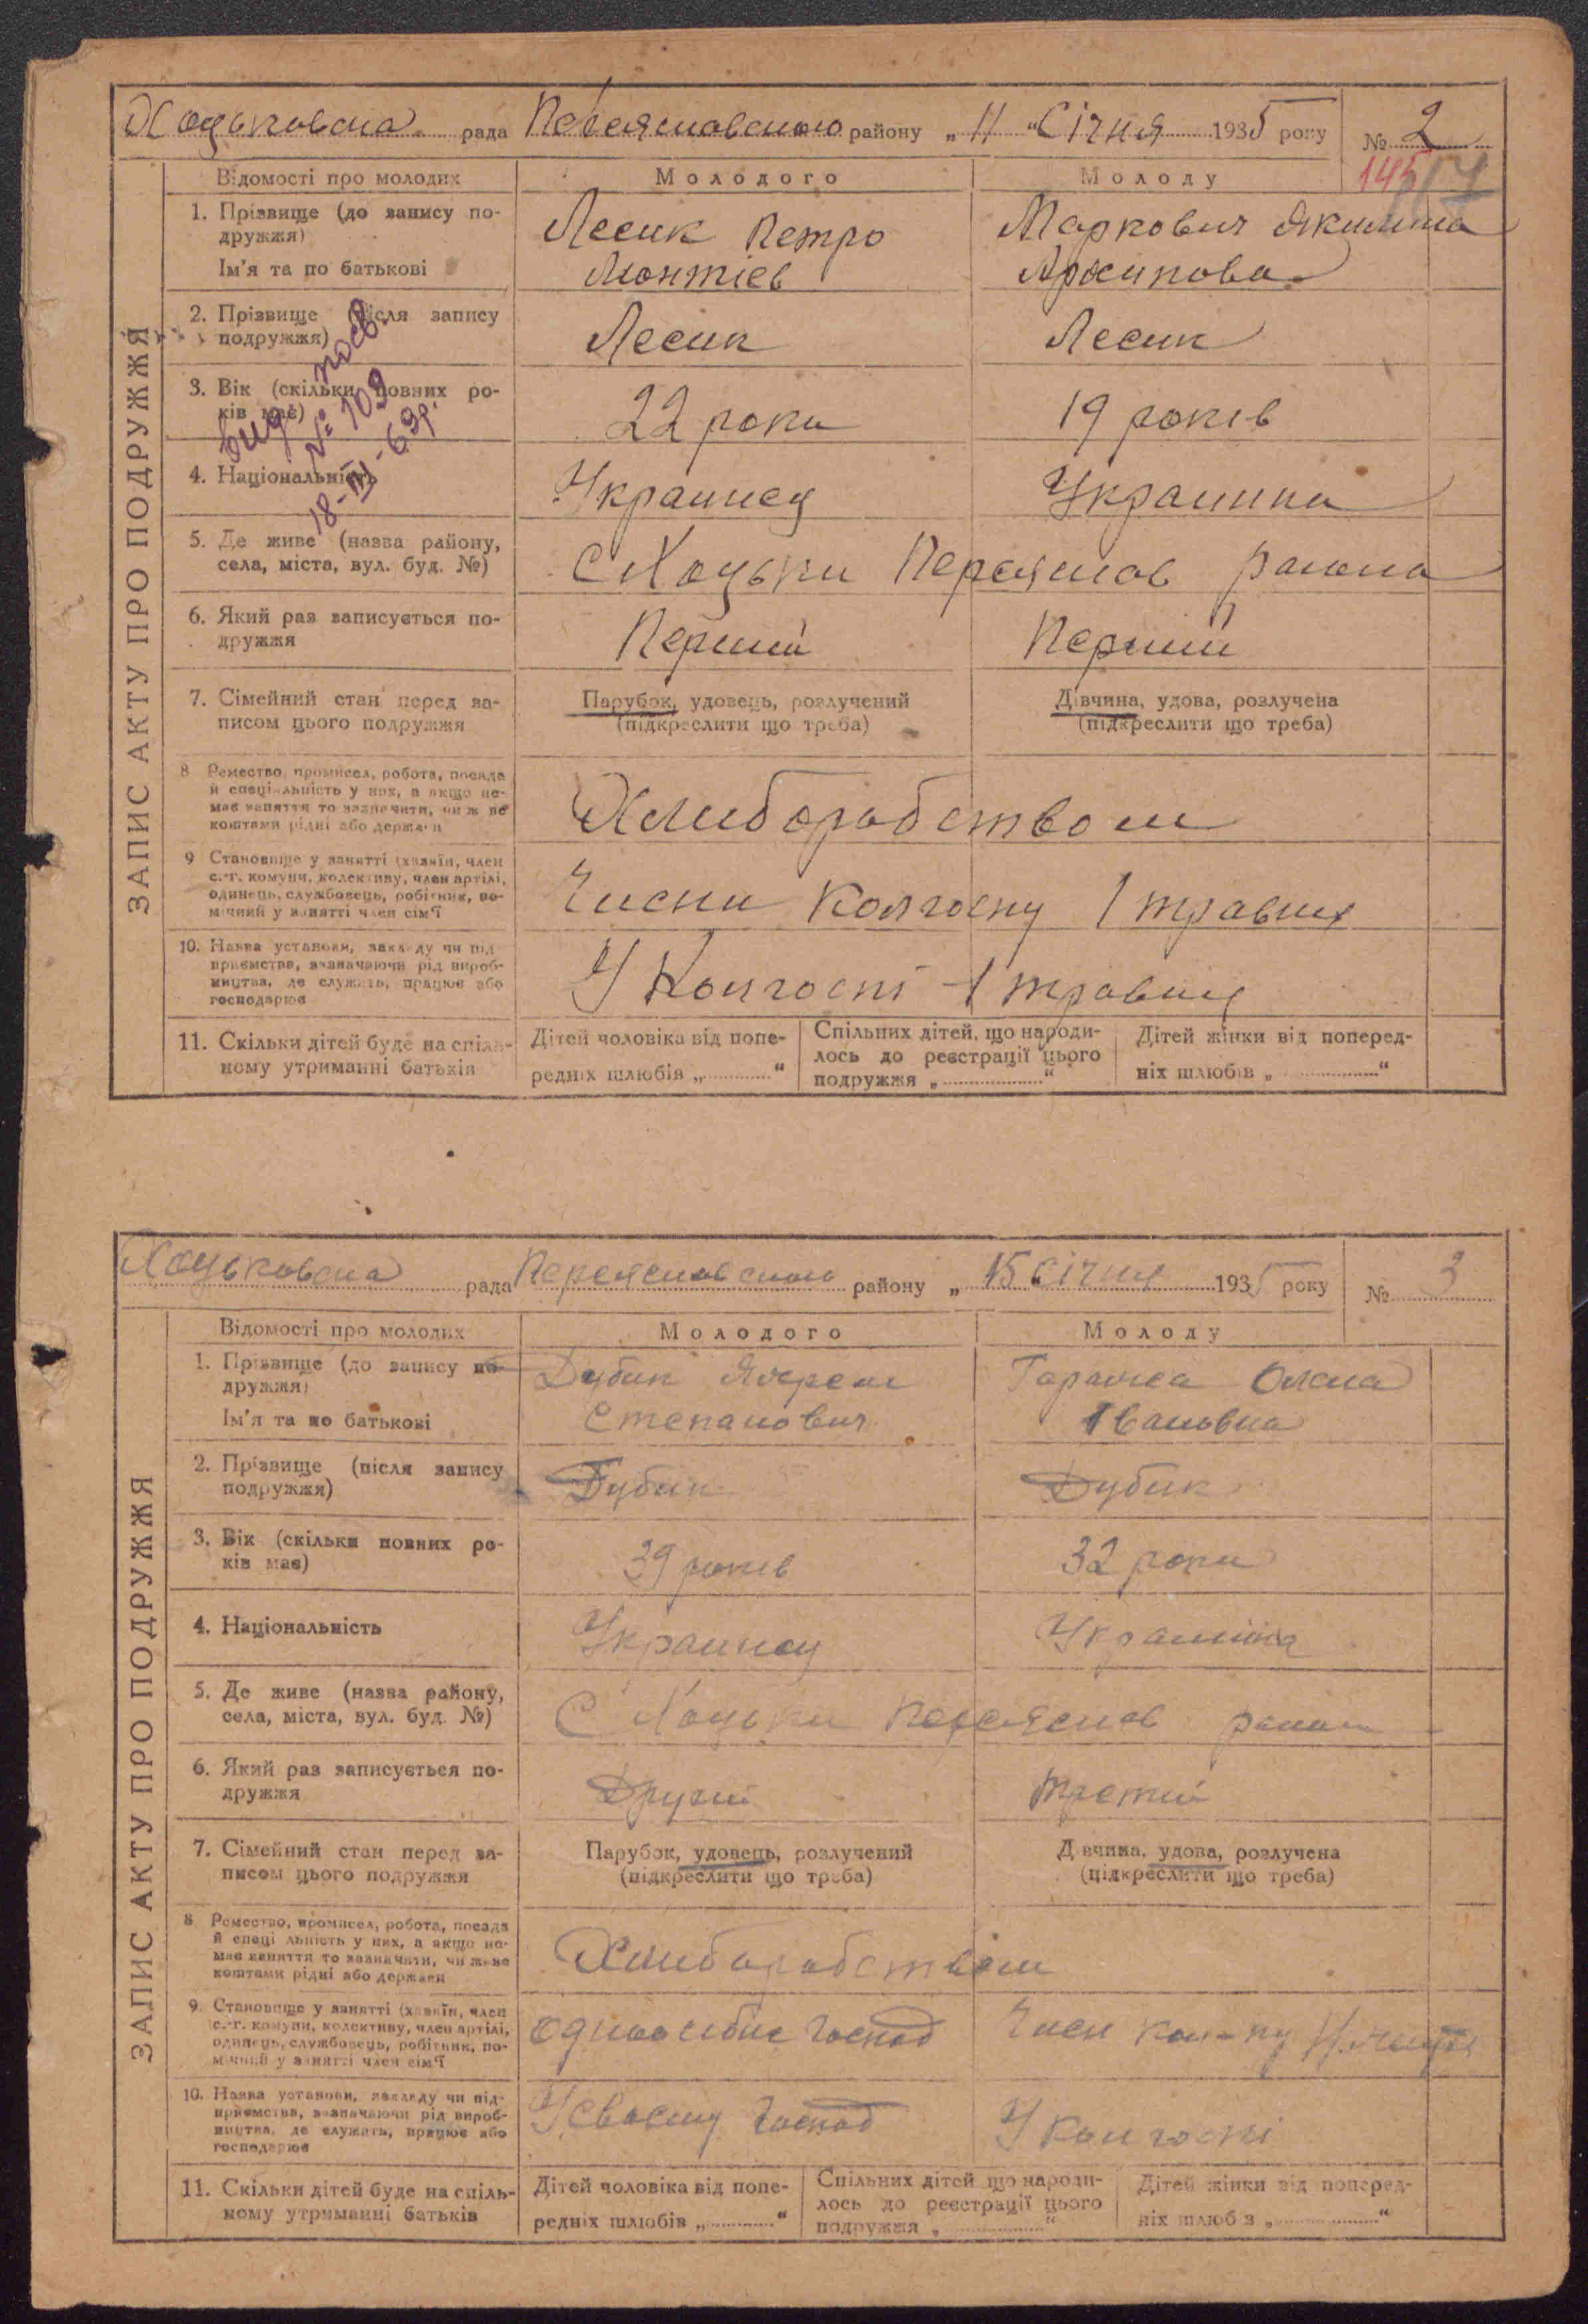 Хоцьковска рада Переяславського району „ 11 “ Січня 1935 року № 2
145
ЗАПИС АКТУ ПРО ПОДРУЖЖЯ
Відомості про молодих Молодого Молоду
1. Прізвище (до запису подружжя) Лесик Петро Маркович Якилина
Ім'я та по батькові Леонтіев Архипова
2. Прізвище (після запису подружжя) Лесик Лесик
вид. посв.
№ 109
18-III-69р.
3. Вік (скільки повних років має) 22 роки 19 років
4. Національність Украинец Украинка
5. Де живе (назва району, села, міста, вул. буд. №) С Хоцьки Переяслав района
6. Який раз записується подружжя Перший Перший
7. Сімейний стан перед записом цього подружжя Парубок, удовець, розлучений (підкреслити що треба) Дівчина, удова, розлучена (підкреслити що треба)
8 Ремество, промисел, робота, посада й спеціальність у них, а якщо немає заняття то зазначити, чи живе коштами рідні або держави Хлиборобством
9 Становище у занятті (хазяїн, член с.-г. комуни, колективу, член артілі, одинець, службовець, робітник, помічний у занятті член сім'ї Члени Колгоспу 1 травня
10. Назва установи, закладу чи підприємства, зазначаючи рід виробництва, де служить, працює або господарює У Колгоспі 1 травня
11. Скільки дітей буде на спільному утриманні батьків Дітей чоловіка від попередніх шлюбів „ “ Спільних дітей, що народилось до реєстрації цього подружжя „ “ Дітей жінки від попередніх шлюбів „ “
Хоцьковска рада Переяславського району „ 15 “ січня 1935 року № 3
ЗАПИС АКТУ ПРО ПОДРУЖЖЯ
Відомості про молодих Молодого Молоду
1. Прізвище (до запису подружжя) Дубик Гаранжа Олена
Ім'я та по батькові Степанович Івановна
2. Прізвище (після запису подружжя) Дубик Дубик
3. Вік (скільки повних років має) 39 років 32 роки
4. Національність Украинец Украинка
5. Де живе (назва району, села, міста, вул. буд. №) С Хоцьки Переяслав район
6. Який раз записується подружжя Другий Третий
7. Сімейний стан перед записом цього подружжя Парубок, удовець, розлучений (підкреслити що треба) Дівчина, удова, розлучена (підкреслити що треба)
8 Ремество, промисел, робота, посада й спеціальність у них, а якщо немає заняття то зазначити, чи живе коштами рідні або держави Хлиборобством
9. Становище у занятті (хазяїн, член с.-г. комуни, колективу, член артілі, одинець, службовець, робітник, помічний у занятті член сім'ї одноосібне господ Член кол-пу
10. Назва установи, закладу чи підприємства, зазначаючи рід виробництва, де служить, працює або господарює У своєму господ У колгоспі
11. Скільки дітей буде на спільному утриманні батьків Дітей чоловіка від попередніх шлюбів „ “ Спільних дітей що народилось до реєстрації цього подружжя „ “ Дітей жінки від попередніх шлюбів „ “